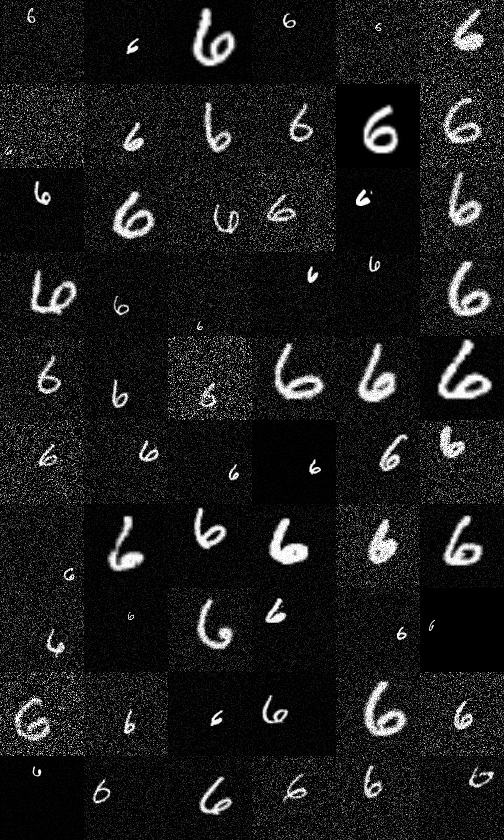 6 6 6 6 6 6
6 6 6 6 6 6
6 6 6 6 6 6
6 6 6 6 6 6
6 6 6 6 6 6
6 6 6 6 6 6
6 6 6 6 6 6
6 6 6 6 6 6
6 6 6 6 6 6
6 6 6 6 6 6